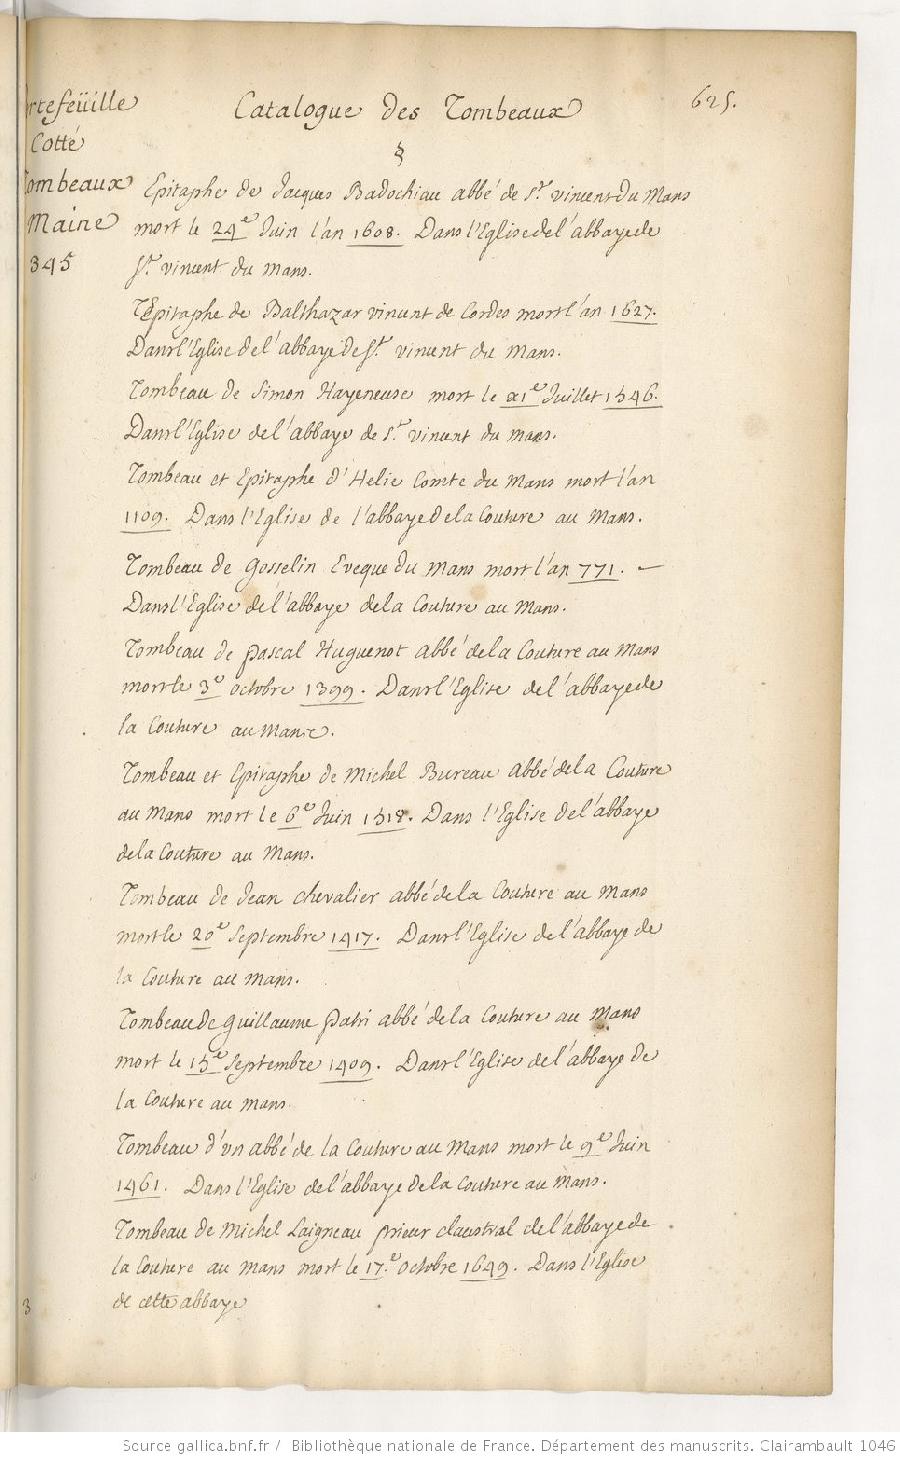 Catalogue des Tombeaux
625.
rtefeüille
Cotté
Tombeaux
Maine
345
Epitaphe de Jacques Badochiau abbé de St. vincent du Mans
mort le 24e Juin l'an 1608. Dans l'Eglise de l'abbaye de
St. vincent du Mans.
Epitaphe de Balthazar vincent de Cordes mort l'an 1627.
Dans l'Eglise de l'abbaye de St. vincent du Mans.
Tombeau de Simon Hayeneuse mort le 21e Juillet 1546.
Dans l'Eglise de l'abbaye de St. vincent du Mans.
Tombeau et Epitaphe d'Helie Comte du Mans mort l'an
1109. Dans l'Eglise de l'abbaye de la Couture au Mans.
Tombeau de Gosselin Eveque du Mans mort l'an 771. —
Dans l'Eglise de l'abbaye de la Couture au Mans.
Tombeau de pascal Huguenot abbé de la Couture au Mans
mort le 3e octobre 1399. Dans l'Eglise de l'abbaye de
la Couture au Mans.
Tombeau et Epitaphe de Michel Bureau abbé de la Couture
au Mans mort le 6e Juin 1518. Dans l'Eglise de l'abbaye
de la Couture au Mans.
Tombeau de Jean chevalier abbé de la Couture au Mans
mort le 20e Septembre 1417. Dans l'Eglise de l'abbaye de
la Couture au Mans.
Tombeau de guillaume patri abbé de la Couture au Mans
mort le 15e Septembre 1409. Dans l'Eglise de l'abbaye de
la Couture au Mans
Tombeau d'vn abbé de la Couture au Mans mort le 9e Juin
1461. Dans l'Eglise de l'abbaye de la Couture au Mans.
Tombeau de Michel Laigneau prieur claustral de l'abbaye de
la Couture au Mans mort le 17e. octobre 1649. Dans l'Eglise
de cette abbaye
3
Source gallica.bnf.fr / Bibliothèque nationale de France. Département des manuscrits. Clairambault 1046